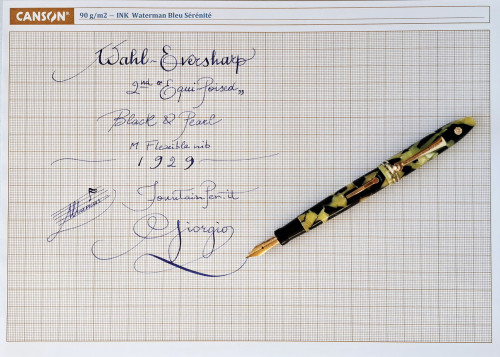 CANSON® 90 g/m2 – INK Waterman Bleu Sérénité
Wahl-Eversharp
2nd "Equi-Poised"
Black & Pearl
M Flexible nib
1929
FountainPen.it
Giorgio